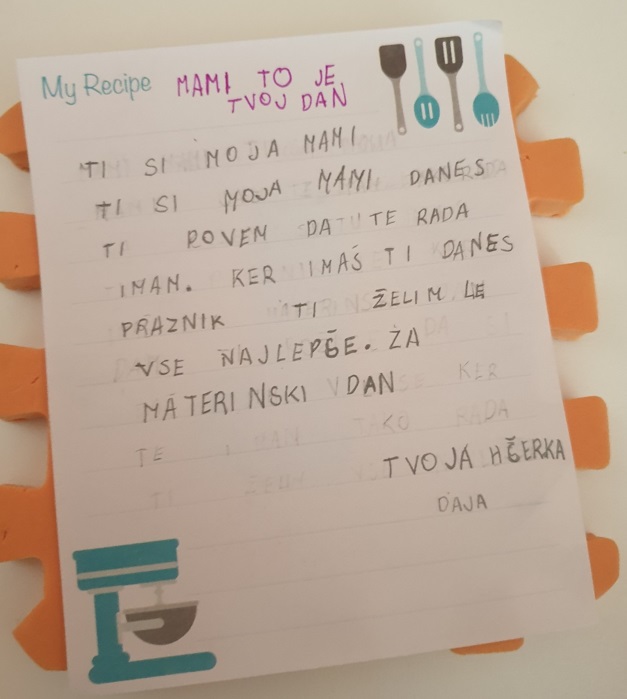 My Recipe MAMI TO JE
TVOJ DAN
TI SI MOJA MAMI
TI SI MOJA MAMI. DANES
TI POVEM DA TE RADA
IMAM. KER IMAŠ TI DANES
PRAZNIK TI ŽELIM LE
VSE NAJLEPŠE. ZA
MATERINSKI DAN
TVOJA HČERKA
DAJA